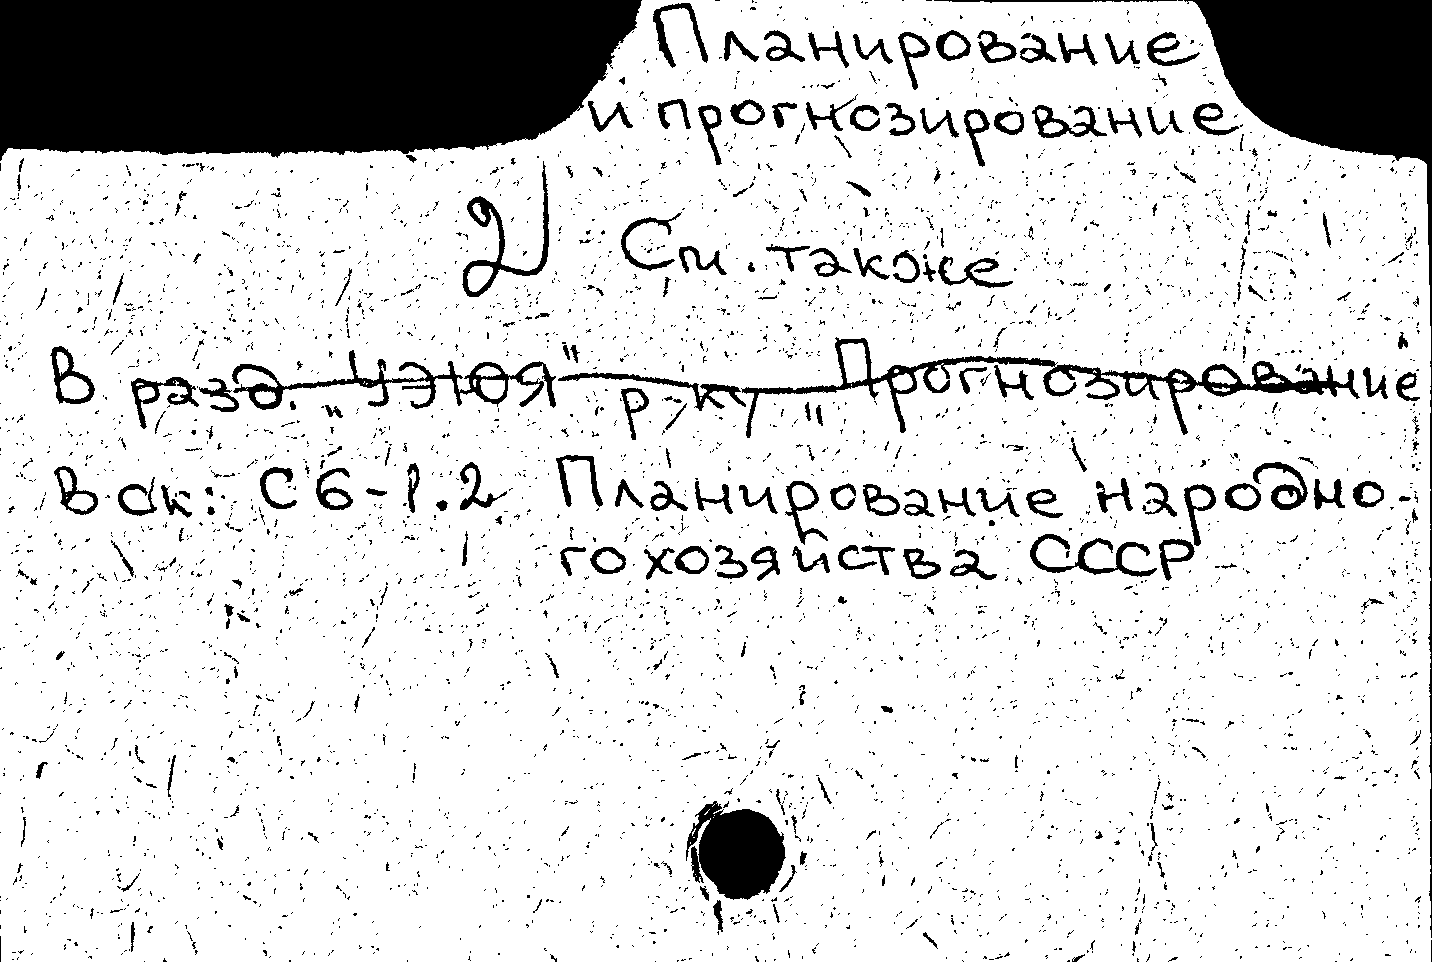 Планирование
и прогнозирование
2 См. также
В разд. „УЭЮЯ" р-ку „Прогнозирование"
В ск: С6-1.2 Планирование народно-
го хозяйства СССР